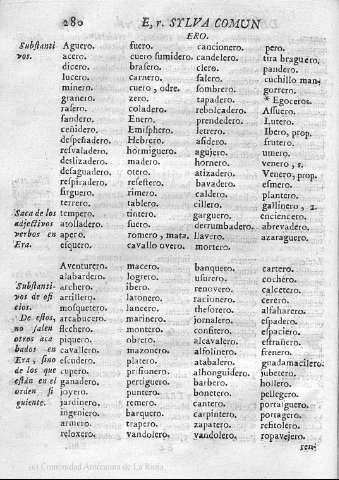 280 E, r. SYLVA COMUN
ERO.
Substanti- Aguero. fuero. cancionero. pero.
vos. acero. cuero sumidero. candelero. tira braguero.
dicero. brasero. clero. pandero.
lucero. carnero. salero. cuchillo man-
minero. cuero, odre. sombrero. gorrero.
granero. zero. tapadero. * Egoceros.
rasero. coladero. rebolcadero. Assuero.
sandero. Enero. prendedero. Lutero.
ceñidero. Emisphero. letrero. Ibero, prop.
despeñadero. Hebrero. asidero. frutero.
resvaladero. hormiguero. agujero. umero.
deslizadero. madero. hornero. venero, s.
desaguadero. otero. atizero. Venero, prop.
respiradero. resestero. bavadero. esmero.
sirguero. rimero. caldero. plantero.
terrero. tablero. cillero. gallinero, 2.
Saca de los tempero. tintero. garguero. enciencero.
adjectivos atolladero. fuero. derrumbadero. abrevadero.
verbos en apero. romero, mata. llavero. azaraguero.
Era. esquero. cavallo overo. mortero.
Aventurero. macero. banquero. cartero.
alabardero. logrero. usurero. cochero.
Substanti- archero. ibero. renovero. calcetero.
vos de ofi- artillero. latonero. racionero. cerero.
cios. mosquetero. lancero. thesorero. alfaharero.
De estos, arcabucero. marinero. jornalero. espadero.
no salen flechero. montero. confitero. espaciero.
otros aca piquero. obrero. alcavalero. estrañero.
bados en cavallero. mazonero. alfolinero. frenero.
Era, sino escudero. platero. atabalero. guadamacilero.
de los que cupero. prisionero. alhonguidero. jubetero.
están en el ganadero. pertiguero. barbero. hollero.
orden si joyero. puntero. bonetero. pellegero.
guiente. jardinero. remero. cantero. portalguero.
ingeniero. barquero. carpintero. portagero.
armero. trapero. zapatero. refitolero.
reloxero. vandolero. vandolero. ropavejero.
(c) Comunidad Autónoma de La Rioja